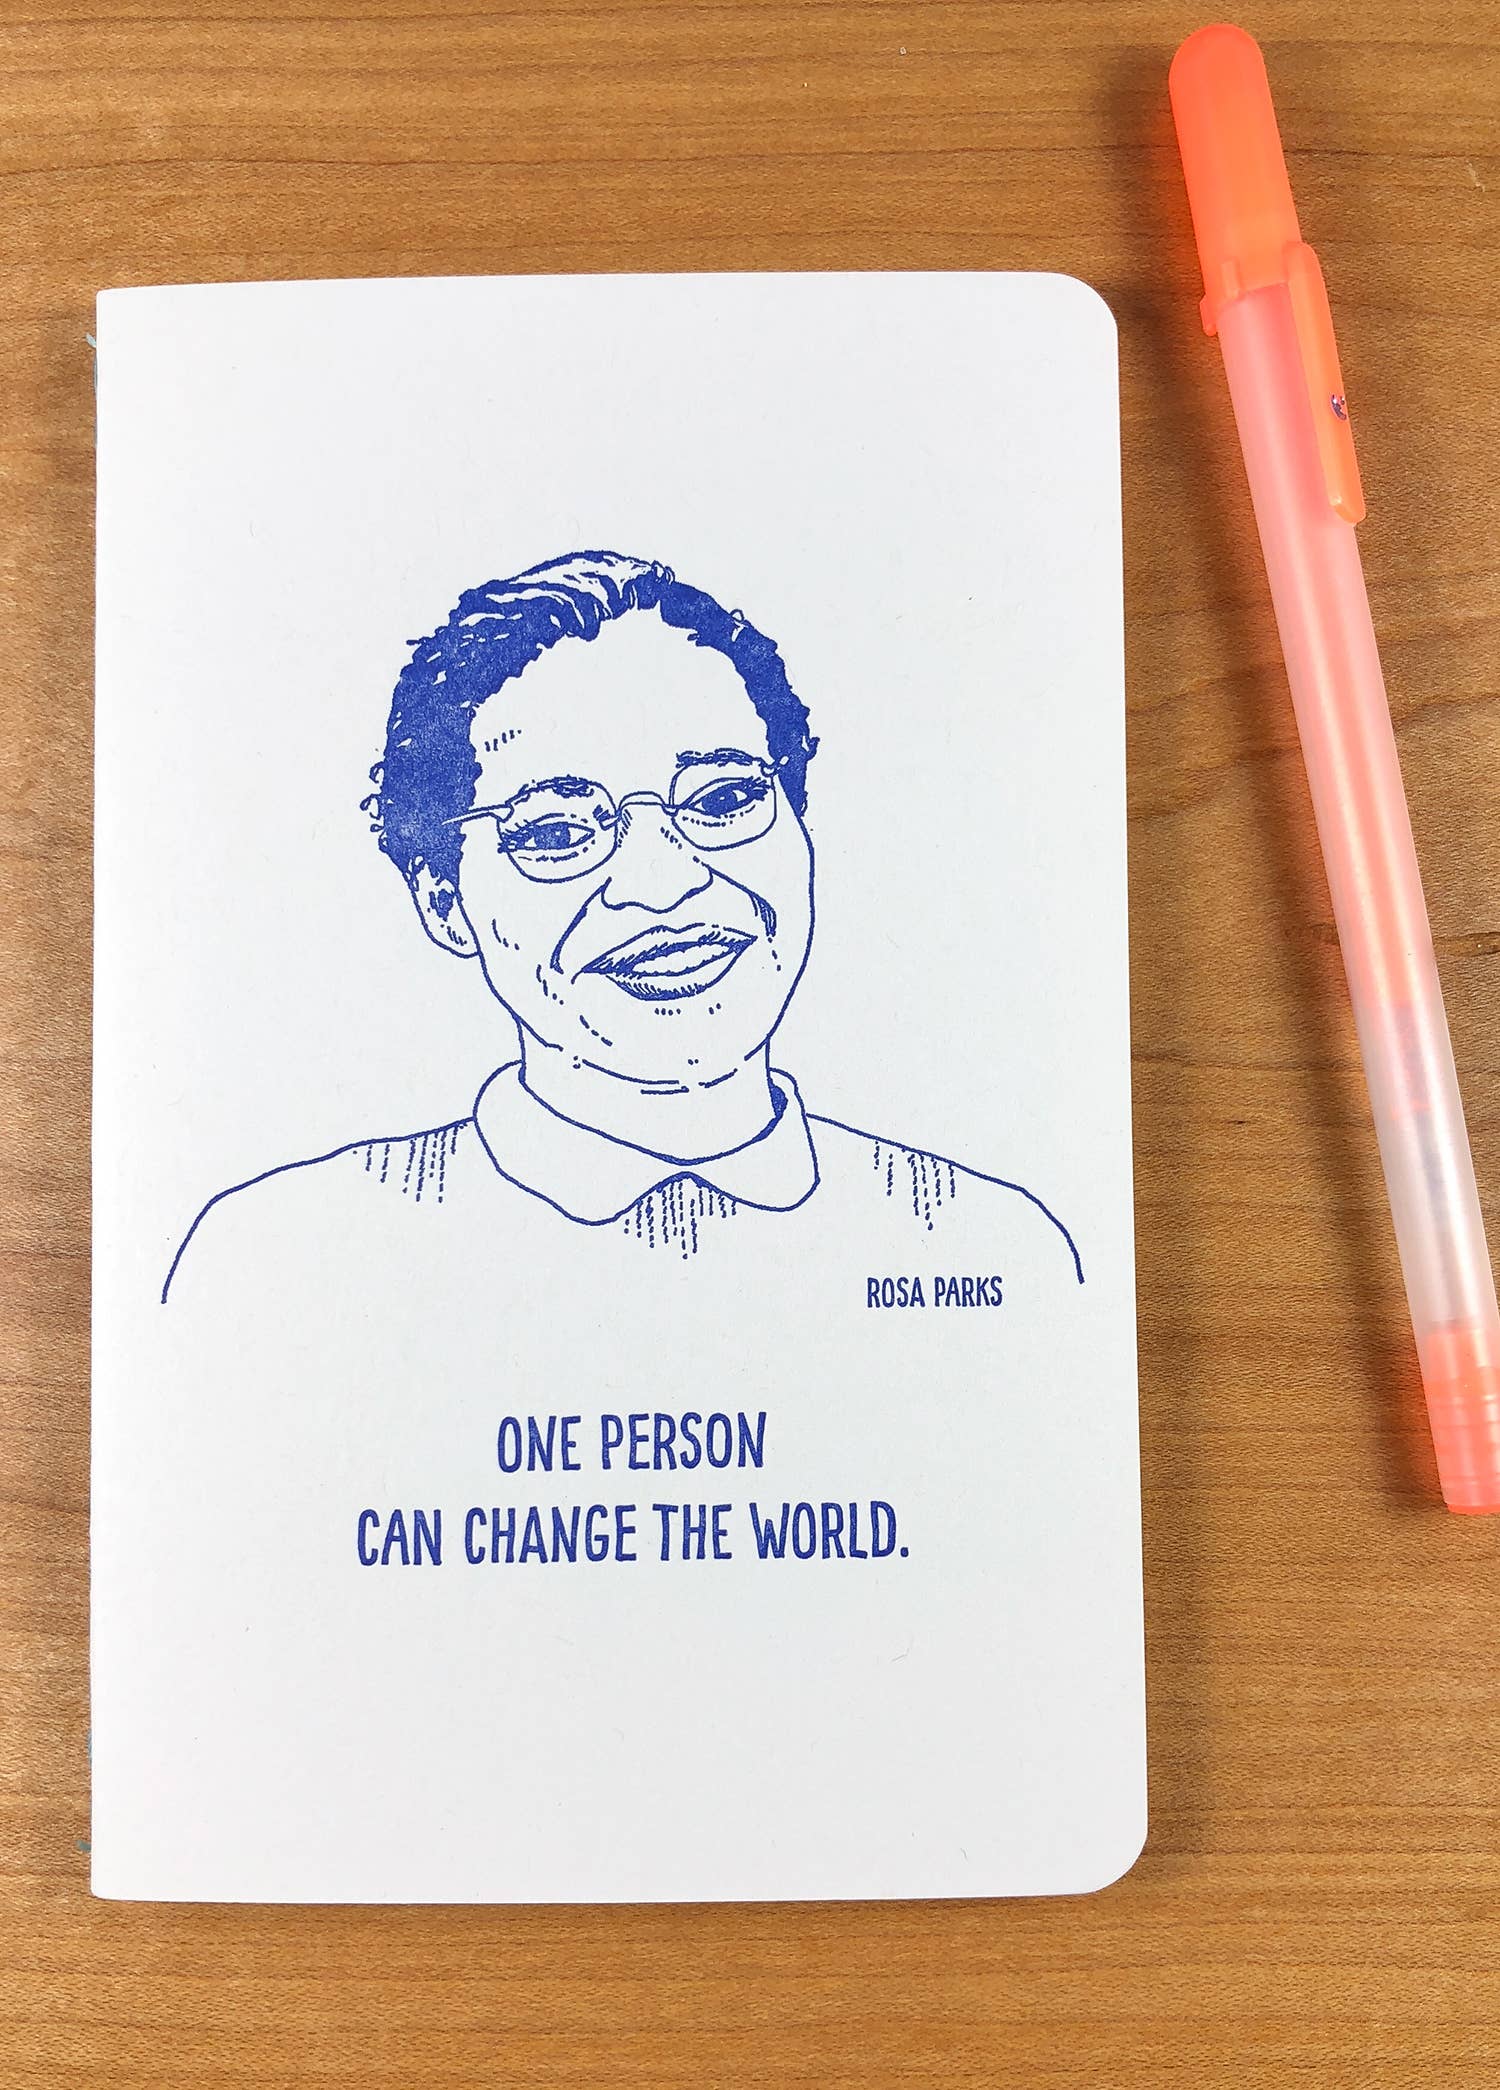 ROSA PARKS
ONE PERSON
CAN CHANGE THE WORLD.